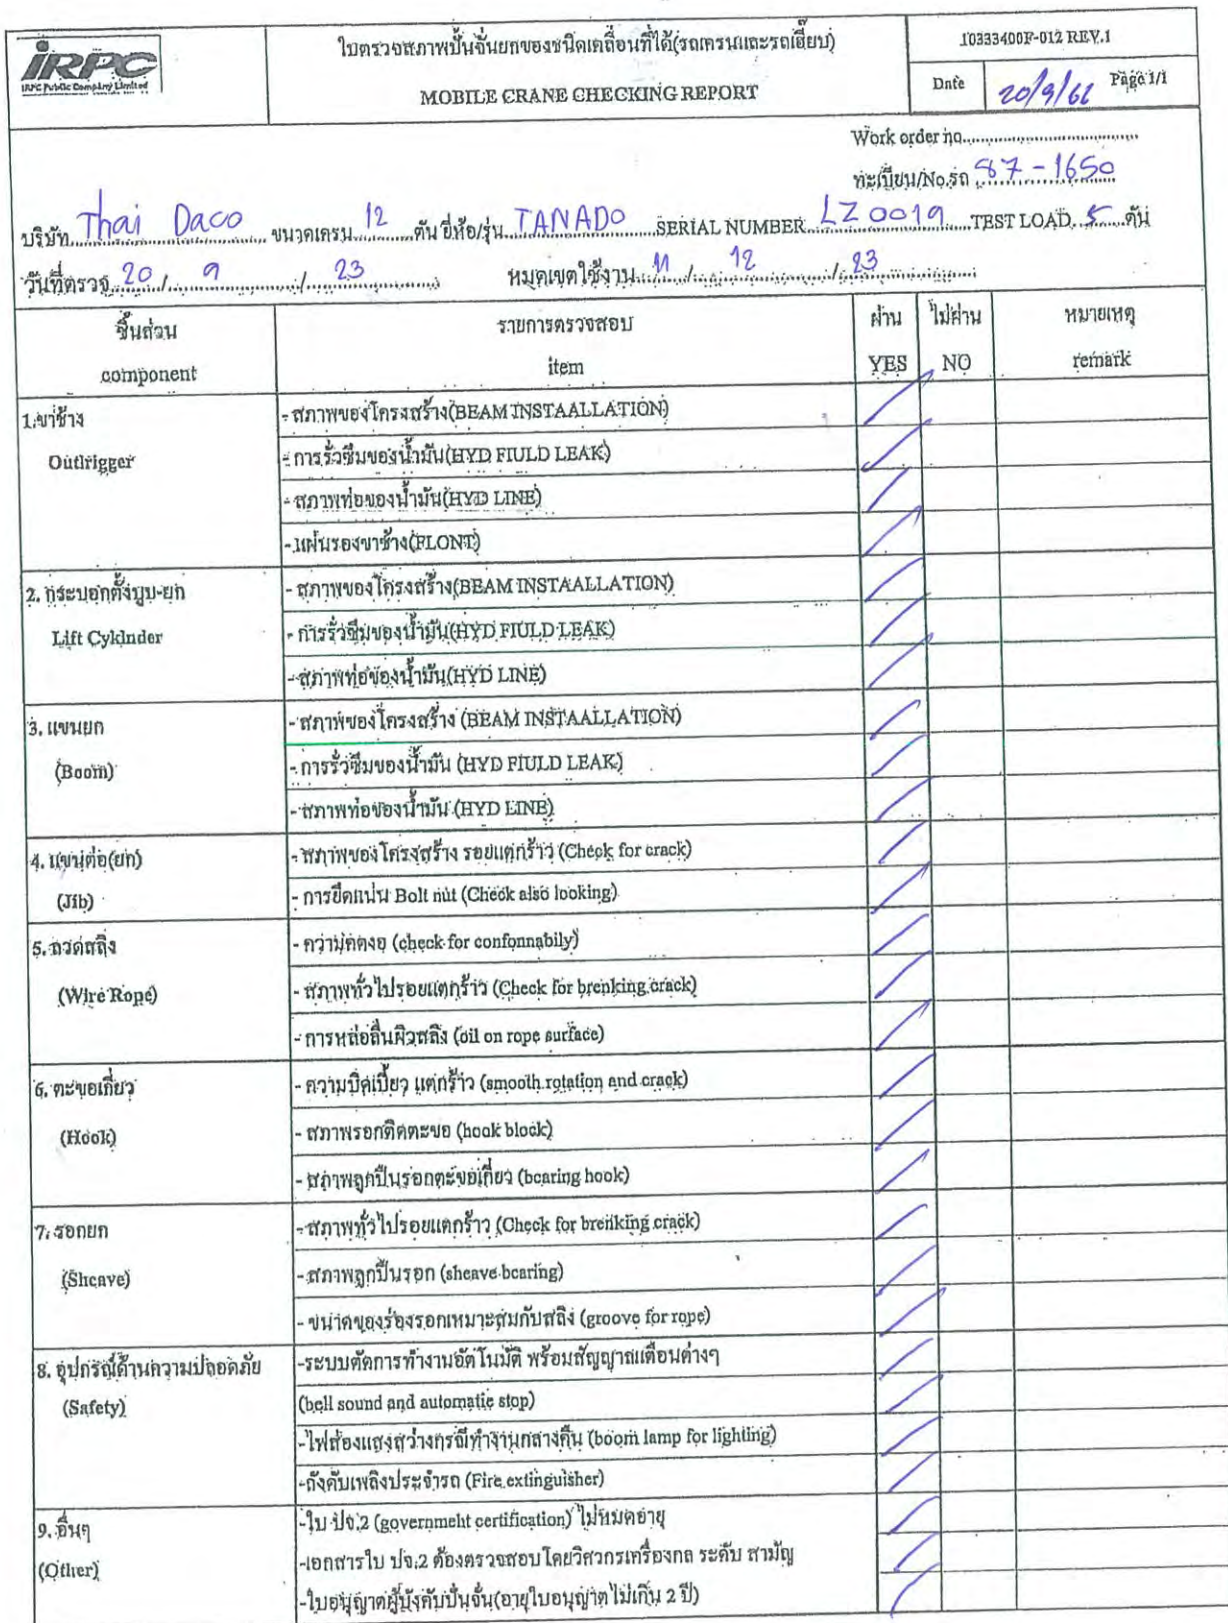 IRPC
IRPC Public Company Limited
ใบตรวจสภาพปั้นจั่นยกของชนิดเคลื่อนที่ได้(รถเครนและรถเฮี๊ยบ)
MOBILE CRANE CHECKING REPORT
10333400F-012 REV.1
Date 20/9/66 Page 1/1
Work order no.
ทะเบียน/No.รถ 87-1650
บริษัท Thai Daco ขนาดเครน 12 ตัน ยี่ห้อ/รุ่น TANADO SERIAL NUMBER LZ 0019 TEST LOAD 5 ตัน
วันที่ตรวจ 20 / 9 / 23 หมดเขตใช้งาน 11 / 12 / 23
ชิ้นส่วน รายการตรวจสอบ ผ่าน ไม่ผ่าน หมายเหตุ
component item YES NO remark
1.ขาช้าง - สภาพของโครงสร้าง(BEAM INSTAALLATION)
Outlrigger - การรั่วซึมของน้ำมัน(HYD FIULD LEAK)
- สภาพท่อของน้ำมัน(HYD LINE)
- แผ่นรองขาช้าง(FLONT)
2. กระบอกตั้งบูม-ยก - สภาพของโครงสร้าง(BEAM INSTAALLATION)
Lift Cykinder - การรั่วซึมของน้ำมัน(HYD FIULD LEAK)
- สภาพท่อของน้ำมัน(HYD LINE)
3. แขนยก - สภาพของโครงสร้าง (BEAM INSTAALLATION)
(Boom) - การรั่วซึมของน้ำมัน (HYD FIULD LEAK)
- สภาพท่อของน้ำมัน (HYD LINE)
4. แขนต่อ(ยก) - สภาพของโครงสร้าง รอยแตกร้าว (Check for crack)
(Jib) - การยึดแน่น Bolt nut (Check also looking)
5. ลวดสลิง - ความคดงอ (check for confonnabily)
(Wire Rope) - สภาพทั่วไปรอยแตกร้าว (Check for brenking crack)
- การหล่อลื่นผิวสลิง (oil on rope surface)
6. ตะขอเกี่ยว - ความบิดเบี้ยว แตกร้าว (smooth rotation and crack)
(Hook) - สภาพรอกติดตะขอ (hook block)
- สภาพลูกปืนรอกตะขอเกี่ยว (bearing hook)
7. รอกยก - สภาพทั่วไปรอยแตกร้าว (Check for brenking crack)
(Sheave) - สภาพลูกปืนรอก (sheave bearing)
- ขนาดของร่องรอกเหมาะสมกับสลิง (groove for rope)
8. อุปกรณ์ด้านความปลอดภัย -ระบบตัดการทำงานอัตโนมัติ พร้อมสัญญาณเตือนต่างๆ
(Safety) (bell sound and automatic stop)
-ไฟส่องแสงสว่างกรณีทำงานกลางคืน (boom lamp for lighting)
-ถังดับเพลิงประจำรถ (Fire extinguisher)
9. อื่นๆ -ใบ ปจ.2 (government certification) ไม่หมดอายุ
(Other) -เอกสารใบ ปจ.2 ต้องตรวจสอบโดยวิศวกรเครื่องกล ระดับ สามัญ
-ใบอนุญาตผู้บังคับปั้นจั่น(อายุใบอนุญาตไม่เกิน 2 ปี)